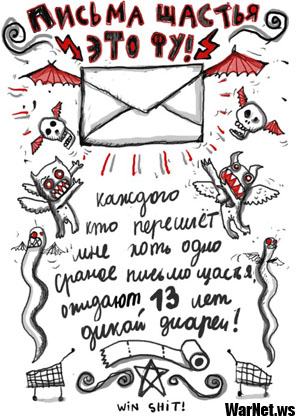 ПИСЬМА ЩАСТЬЯ
ЭТО ФУ!
каждого
кто перешлёт
мне хоть одно
сраное письмо щастья,
ожидают 13 лет
дикой диареи!
WIN SHIT!
WarNet.ws